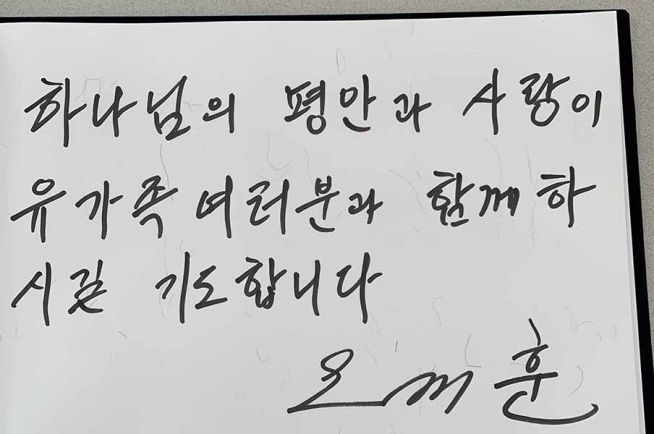 하나님의 평안과 사랑이
유가족 여러분과 함께하
시길 기도합니다
오세훈